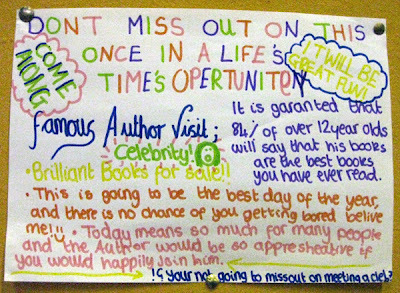 DONT MISS OUT ON THIS
ONCE IN A LIFE'S
TIME'S OPERTUNITEY
COME
ALONG
IT WILL BE
GREAT FUN!
famous Author Visit;
Celebrity!
It is garanted that
84% of over 12 year olds
will say that his books
are the best books
you have ever read.
• Brilliant Books for sale!!
• This is going to be the best day of the year,
and there is no chance of you getting bored belive
me!!! • Today means so much for many people
and the Author would be so appresheative if
you would happily join him.
your not going to missout on meeting a cleb?